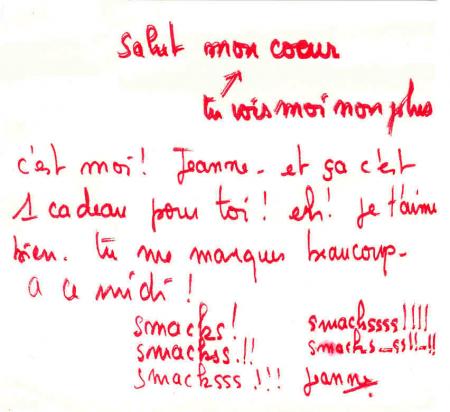 Salut mon coeur
tu vois moi non plus
c'est moi! Jeanne. et ça c'est
1 cadeau pour toi! eh! je t'aime
bien. tu me manques beaucoup.
a ce midi!
smacks! smackssss!!!!
smackss.!! smacks_ss!!_!!
smacksss!!! Jeanne